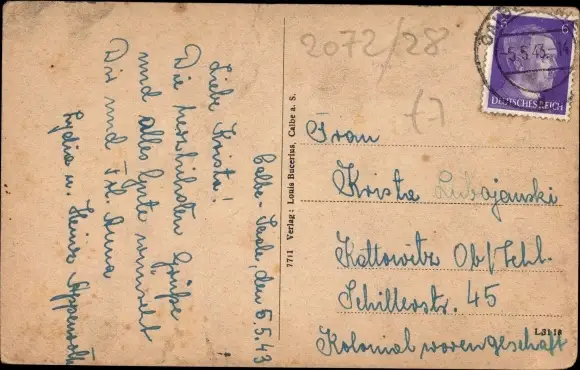 Calbe-Saale, den 5.5.43
Liebe Krista!
Die herzlichsten Grüße
und alles Gute wünscht
Dir und Frl. Anna
Lydia u. Heinz
7711 Verlag: Louis Bucerius, Calbe a. S.
2072/28
5.5.43.-14
6
DEUTSCHES REICH
Frau
Krista Lubojanski
Kattowitz Ob/Schl.
Schillerstr. 45
Kolonialwarengeschäft